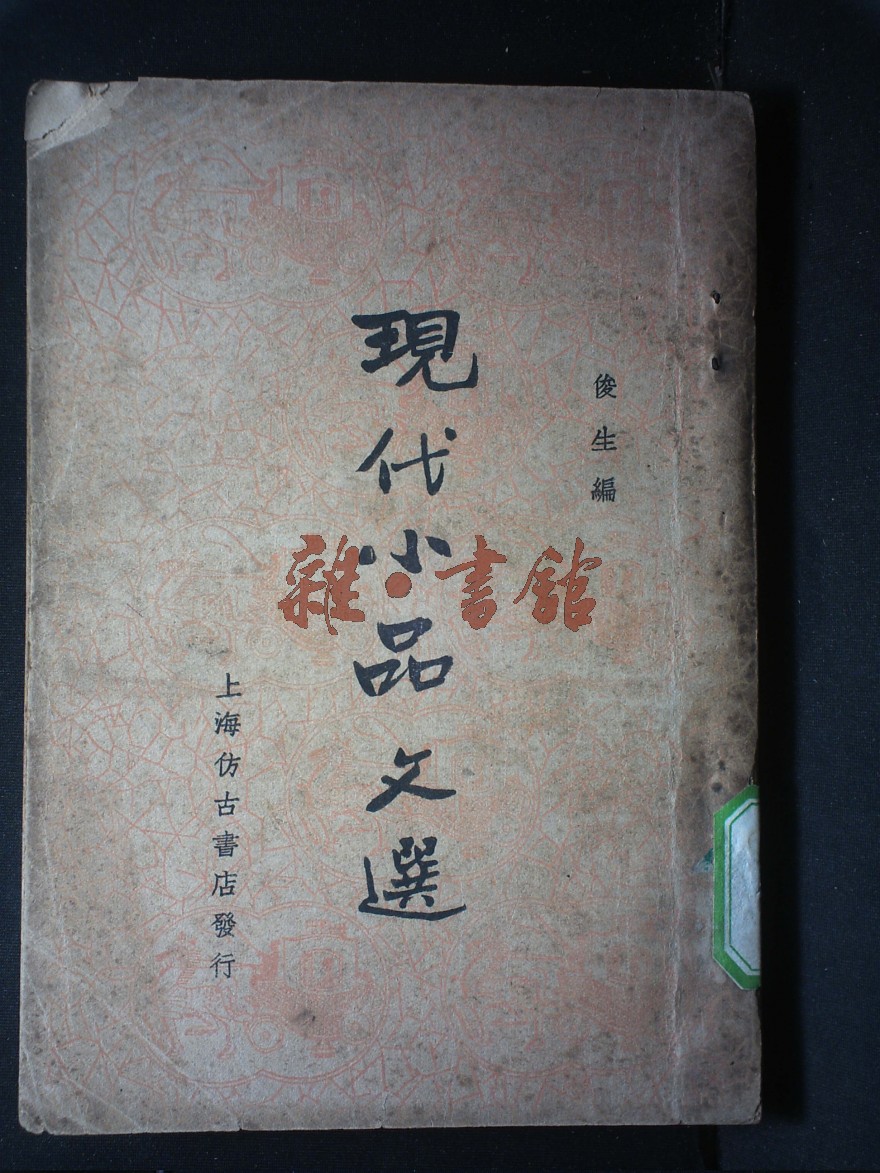 俊生編
現代小品文選
上海仿古書店發行
雜·書館